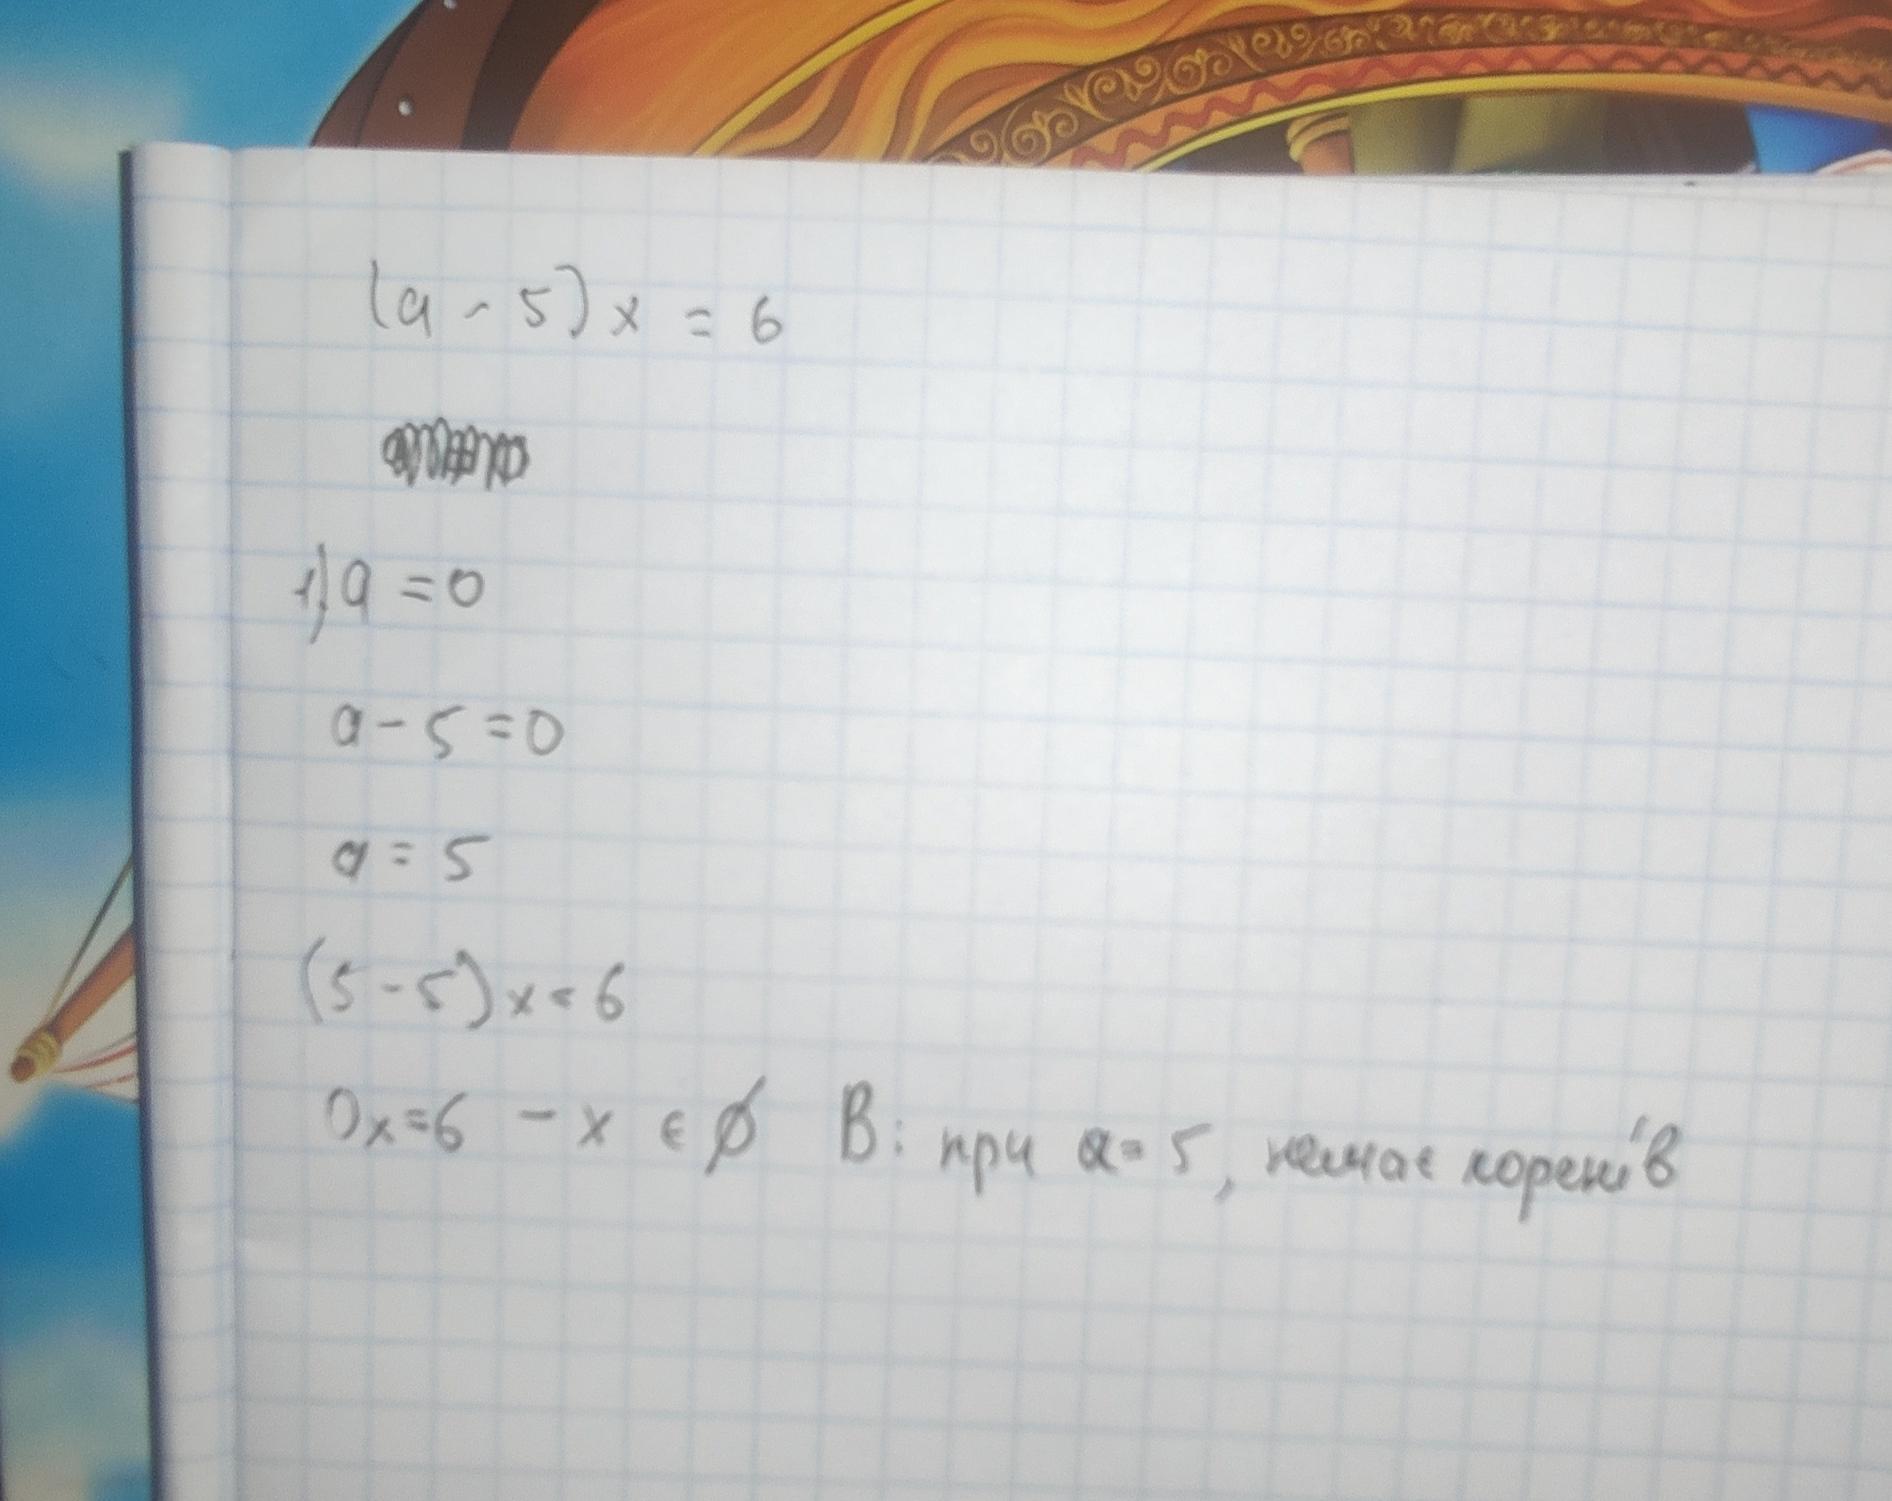 (a - 5)x = 6
1) a = 0
a - 5 = 0
a = 5
(5 - 5)x = 6
0x = 6 - x ∈ ∅ В: при a = 5, немає коренів